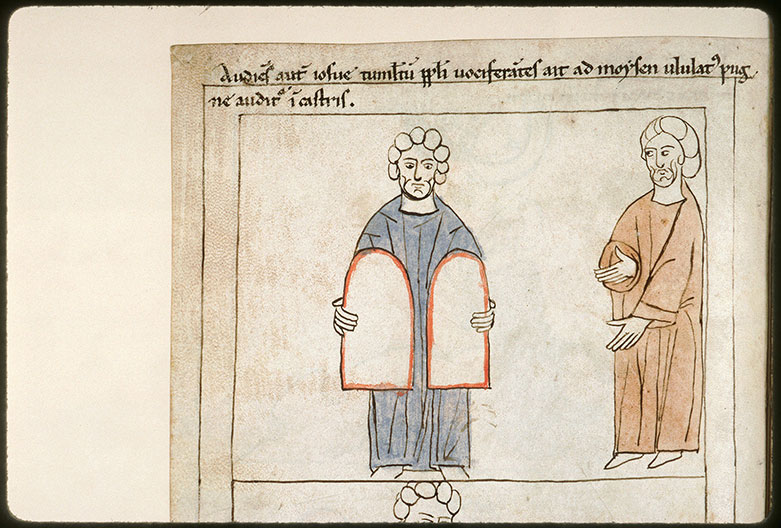 Audiēs aut̄ iosue tuml̄tū ppl̄i uociferātes ait ad moẏsen ululatꝰ pug
ne auditᷣ ī castris.